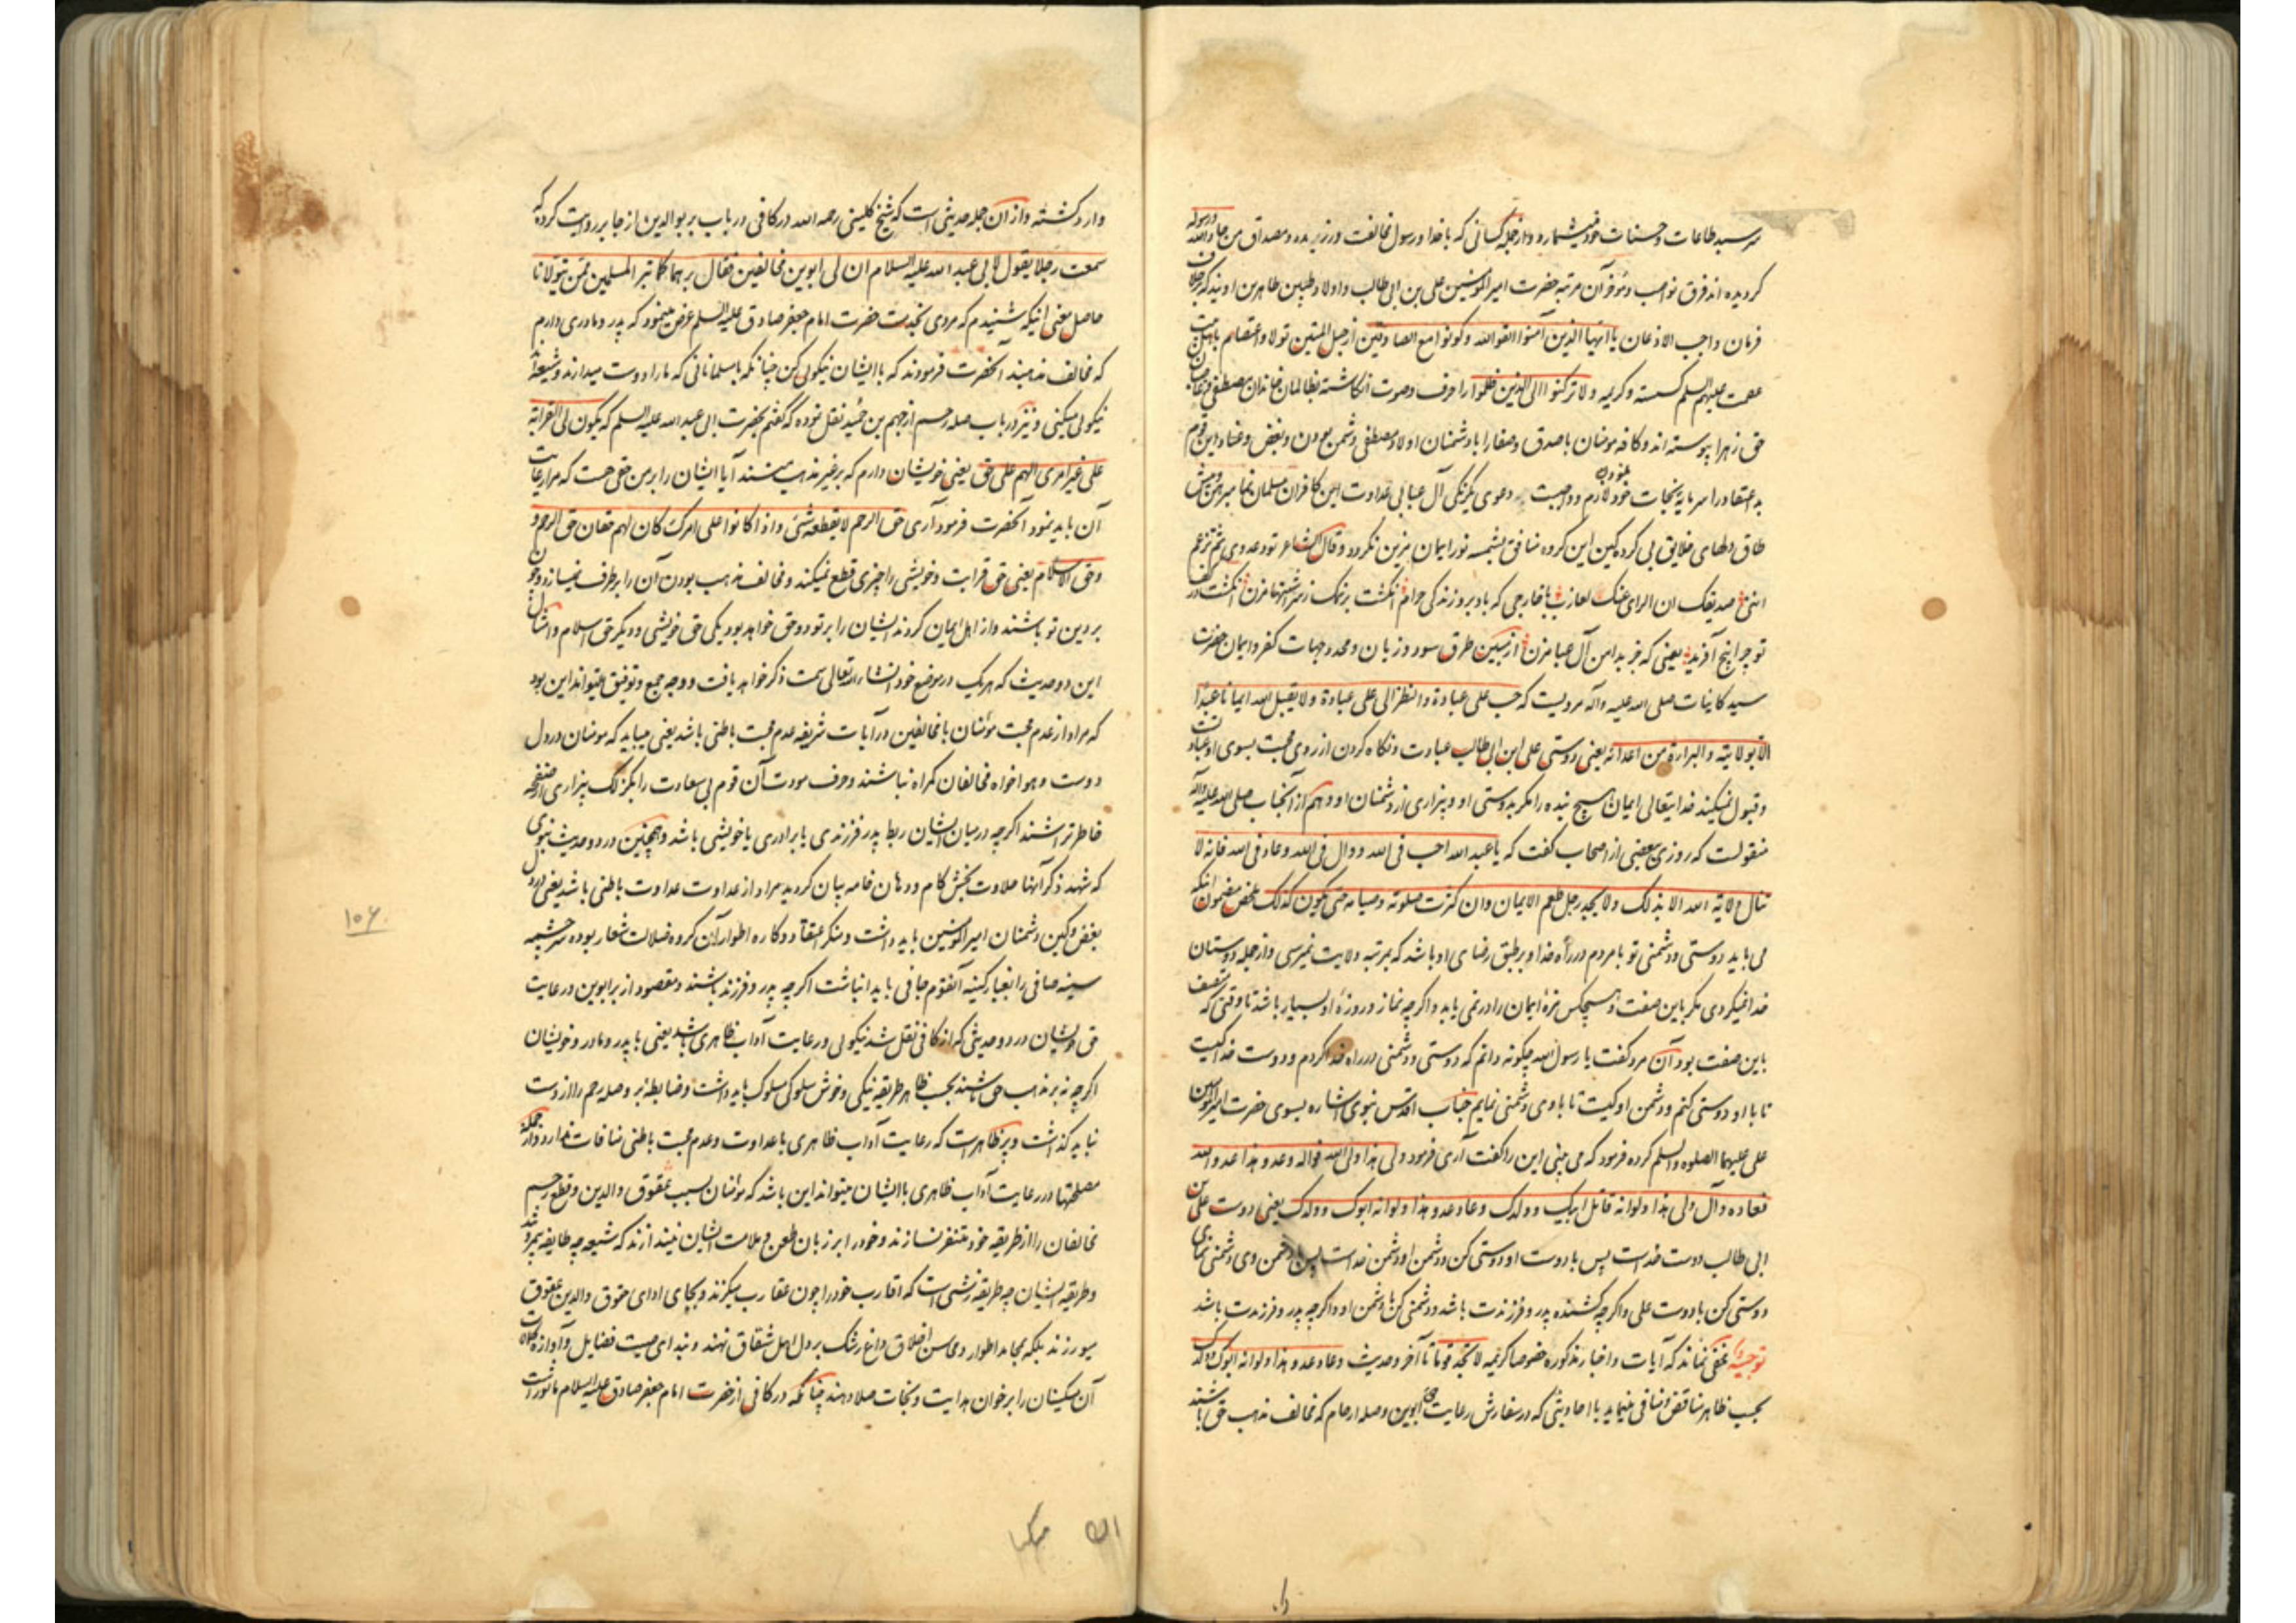 سرسبد طاعات و حسنات خود میشمارد و از جمله کسانی که با خدا و رسول مخالفت ورزیده و مصداق من حاد الله و رسوله
کردیده اند فرق نواصب و مرتبه حضرت امیرالمؤمنین علی بن ابی طالب و اولاد طیبین طاهرین اویند که بر خلاف
فرمان واجب الاذعان یا ایها الذین آمنوا اتقوا الله و کونوا مع الصادقین از حبل المتین تولا و اعتصام باهل بیت
عصمت علیهم السلم کسسته و کریمه و لا ترکنوا الی الذین ظلموا را حرف و صوت انکاشته بظالمان خاندان مصطفی و غاصبان
حق زهرا پیوسته اند و کافه مومنان با صدق و صفا را با دشمنان اولاد مصطفی دشمن بودن و بغض و عناد این قوم
بد اعتقاد را سرمایه نجات خود نمودن لازم و واجبست دعوی یکرنکی آل عبا بی عداوت این کافران مسلمان نما مبرهن
طاق دلهای خلایق بی کرده کین این کروه منافق بشمسه نور ایمان مزین نکردد و قال الشاعر تود عدوی ثم تزعم
اننی صدیقک ان الرای عنک لعازب با خارجی که باد برو زندکی حرام انکشت بر نمک زسر انکشت در
تو چرا پنج آفریدید یعنی که جز بدامن آل عبا مزن از مبین طرق سود و زیان و محدد جهات کفر و ایمان حضرت
سید کاینات صلی الله علیه و آله مرویست که حب علی عبادة والنظر الی علی عبادة ولا یقبل الله ایمانا عبدا
الا بولایته والبراءة من اعدائه یعنی دوستی علی ابن ابی طالب عبادت و نکاه کردن از روی محبت بسوی او عبادتست
و قبول نمیکند خدایتعالی ایمان هیچ بنده را مکر بدوستی او و بیزاری از دشمنان او و هم از آنجناب صلی الله علیه و آله
منقولست که روزی ببعضی از اصحاب کفت که یا عبد الله احب فی الله و وال فی الله و عاد فی الله فانه لا
تنال ولایة الله الا بذلک ولا یجد رجل طعم الایمان وان کثرت صلوته و صیامه حتی یکون کذلک ملخص مضمون آنکه
می باید دوستی و دشمنی تو با مردم در راه خدا و بر طبق رضای او باشد که بمرتبه ولایت نمیرسی و از جمله دوستان
خدا نمیکردی مکر باین صفت و هیچکس مزهٔ ایمان را در نمی یابد و اکرچه نماز و روزهٔ او بسیار باشد تا وقتی که متصف
باین صفت بود آن مرد کفت یا رسول الله چکونه دانم که دوستی و دشمنی در راه خدا کردم و دوست خدا کیست
تا با او دوستی کنم و دشمن او کیست تا با وی دشمنی نمایم جناب اقدس نبوی اشاره بسوی حضرت امیرالمؤمنین
علی علیهما الصلوه والسلم کرده فرمود که می بینی این را کفت آری فرمود ولی هذا ولی الله فواله و عدو هذا عدو الله
فعاده و آل ولی هذا ولو انه قاتل ابیک و ولدک و عاد عدو هذا ولو انه ابوک و ولدک یعنی دوست علی بن
ابی طالب دوست خداست پس با دوست او دوستی کن و دشمن او دشمن خداست پس با دشمن وی دشمنی نمای
دوستی کن با دوست علی و اکرچه کشنده پدر و فرزندت باشد و دشمنی کن با دشمن او و اکرچه پدر و فرزندت باشد
توجیه مخفی نماند که آیات و اخبار مذکوره خصوصا کریمه لا تجد قوما تا آخر و حدیث و عاد عدو هذا ولو انه ابوک و ولدک
بحسب ظاهر مناقض و منافی مینماید با احادیثی که در سفارش رعایت حق ابوین و صله ارحام که مخالف مذهب حق باشند
وارد کشته و از آن جمله حدیثی است که شیخ کلینی رحمه الله در کافی در باب بر بوالدین از جابر روایت کرده که
سمعت رجلا یقول لابی عبد الله علیه السلام ان لی ابوین مخالفین فقال برهما کما تبر المسلمین ممن یتولانا
حاصل معنی آنکه شنیدم که مردی بخدمت حضرت امام جعفر صادق علیه السلم عرض مینمود که پدر و مادری دارم
که مخالف مذهبند آنحضرت فرمودند که با ایشان نیکوئی کن چنانکه با مسلمانانی که ما را دوست میدارند و شیعه اند
نیکوئی میکنی و نیز در باب صله رحم از جهم بن حمید نقل نموده که کفتم بحضرت ابی عبد الله علیه السلم که یکون لی القرابة
علی غیر امری الهم علی حق یعنی خویشان دارم که بر غیر مذهب هستند آیا ایشان را بر من حقی هست که مرا رعایت
آن باید نمود آنحضرت فرمود آری حق الرحم لا یقطعه شئ واذا کانوا علی امرک کان لهم حقان حق الرحم و
وحق الاسلام یعنی حق قرابت و خویشی را چیزی قطع نمیکند و مخالف مذهب بودن آن را برطرف نمیسازد و چون
بر دین تو باشند و از اهل ایمان کردند ایشان را بر تو دو حق خواهد بود یکی حق خویشی و دیکر حق اسلام و امثال
این دو حدیث که هر یک در موضع خود انشاء الله تعالی سمت ذکر خواهد یافت و وجه جمع و توفیق میتواند این بود
که مراد از عدم محبت مؤمنان با مخالفین در آیات شریفه عدم محبت باطنی باشد یعنی میباید که مومنان در دل
دوست و هواخواه مخالفان کمراه نباشند و حرف مودت آن قوم بی سعادت را بکزلک بیزاری از صفحه
خاطر تراشند اکرچه در میان ایشان ربط پدر فرزندی یا برادری یا خویشی باشد و همچنین در دو حدیث نبوی
که شهد ذکر آنها حلاوت بخش کام و دهان خامه بیان کردید مراد از عداوت عداوت باطنی باشد یعنی در دل
بغض و کین دشمنان امیرالمؤمنین باید داشت و منکر اعتقاد و کاره اطوار آن کروه ضلالت شعار بوده سرچشمه
سینه صافی را بغبار کینه آنقوم جافی باید انباشت اکرچه پدر و فرزند باشند و مقصود از بر ابوین و رعایت
حق خویشان در دو حدیثی که از کافی نقل شد نیکوئی و رعایت آداب ظاهری باشد یعنی با پدر و مادر و خویشان
اکرچه نه بر مذهب حق باشند بحسب ظاهر طریقه نیکی و خوش سلوکی مسلوک باید داشت و ضابطهٔ بر و صله رحم را از دست
نباید کذاشت و پر ظاهر است که رعایت آداب ظاهری با عداوت و عدم محبت باطنی منافات ندارد و از جمله
مصلحتها در رعایت آداب ظاهری با ایشان میتواند این باشد که مؤمنان بسبب عقوق والدین و قطع رحم
مخالفان را از طریقه خود متنفر نسازند و خود را بر زبان طعن و ملامت ایشان نیندازند که شیعه چه طایفه بیمروتند
و طریقه ایشان چه طریقه زشتی است که اقارب خود را چون عقارب میکزند و بجای ادای حقوق والدین عقوق
میورزند بلکه بمحامد اطوار و محاسن اخلاق داغ رشک بر دل اهل شقاق نهند و بندای صیت فضایل و آوازه کمالات
آن مسکینان را بر خوان هدایت و نجات صلا دهند چنانکه در کافی از حضرت امام جعفر صادق علیه السلام ماثور است
۱۰۶